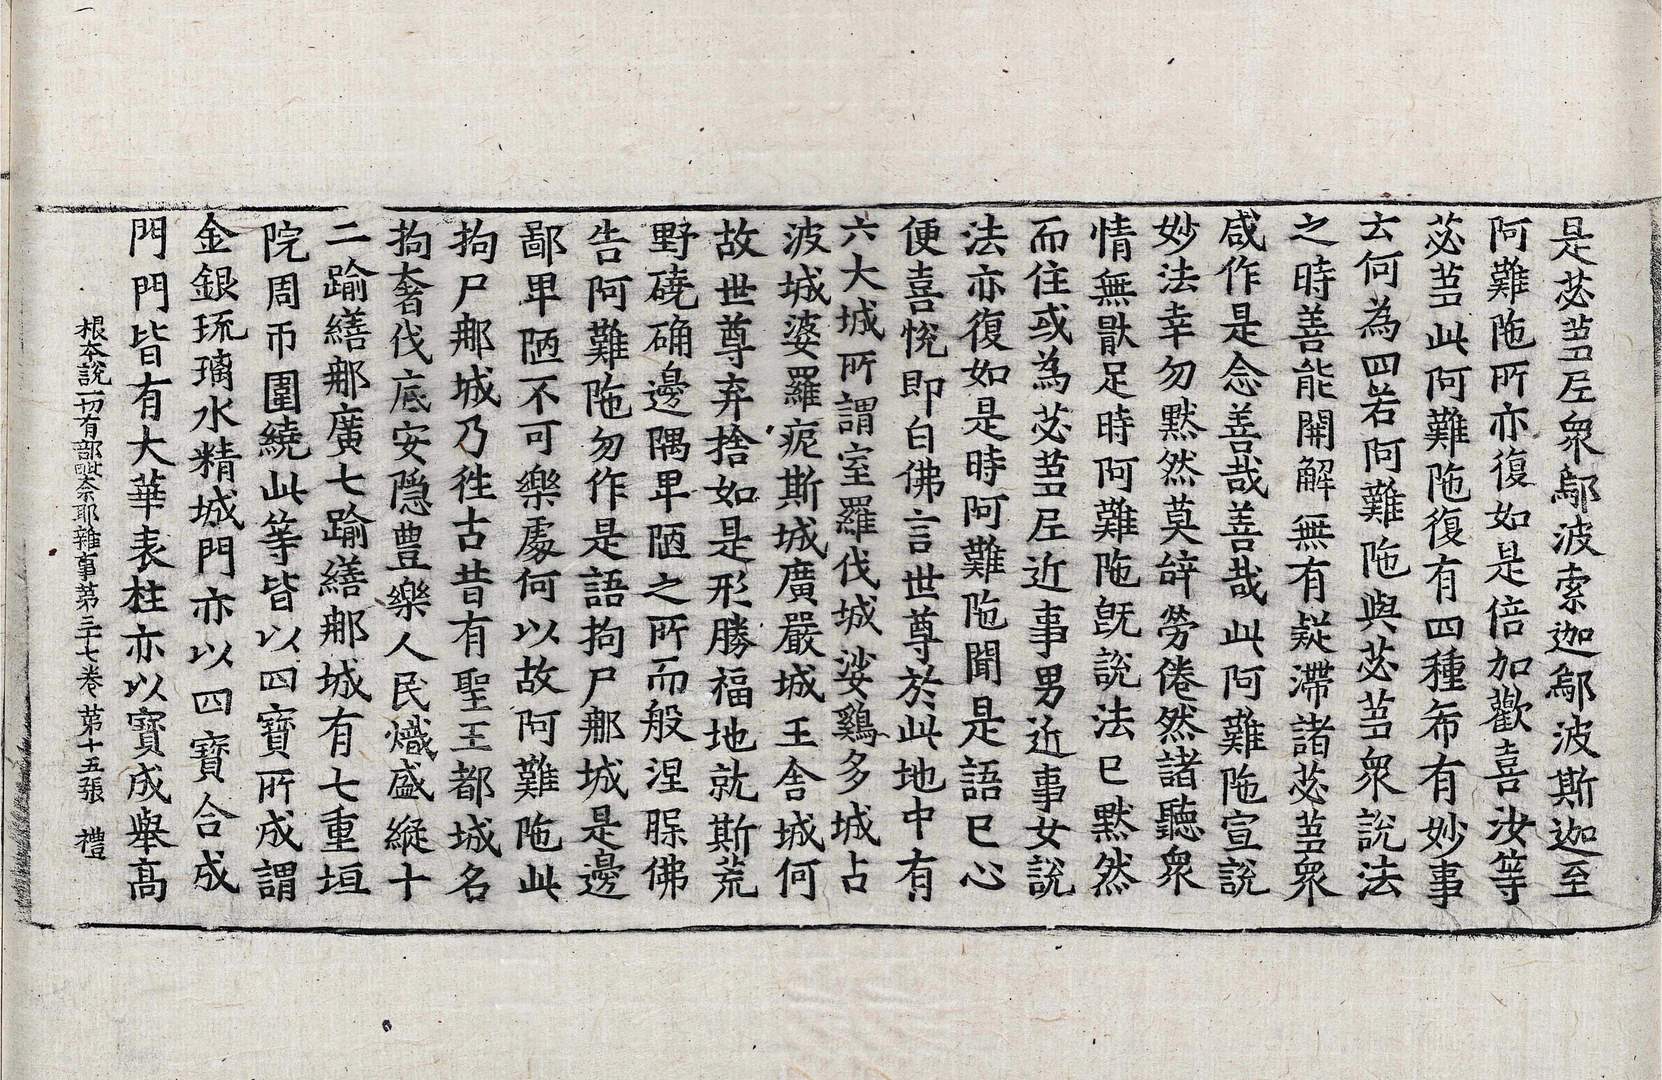 是苾芻尼衆鄔波索迦鄔波斯迦至
阿難陁所亦復如是倍加歡喜汝等
苾芻此阿難陁復有四種希有妙事
云何為四若阿難陁與苾芻衆說法
之時善能開解無有疑滯諸苾芻衆
咸作是念善哉善哉此阿難陁宣說
妙法幸勿默然莫辝勞倦然諸聽衆
情無猒足時阿難陁旣說法已默然
而住或為苾芻尼近事男近事女說
法亦復如是時阿難陁聞是語已心
便喜悅即白佛言世尊於此地中有
六大城所謂室羅伐城娑雞多城占
波城婆羅痆斯城廣嚴城王舍城何
故世尊弃捨如是形勝福地就斯荒
野磽确邊隅卑陋之所而般涅脲佛
告阿難陁勿作是語拘尸那城是邊
鄙卑陋不可樂處何以故阿難陁此
拘尸那城乃徃古昔有聖王都城名
拘奢伐底安隱豊樂人民熾盛縱十
二踰繕那廣七踰繕那城有七重垣
院周帀圍繞此等皆以四寶所成謂
金銀琉璃水精城門亦以四寶合成
門門皆有大華表柱亦以寶成舉高
根本說一切有部毗奈耶雜事第三十七卷 第十五張 禮